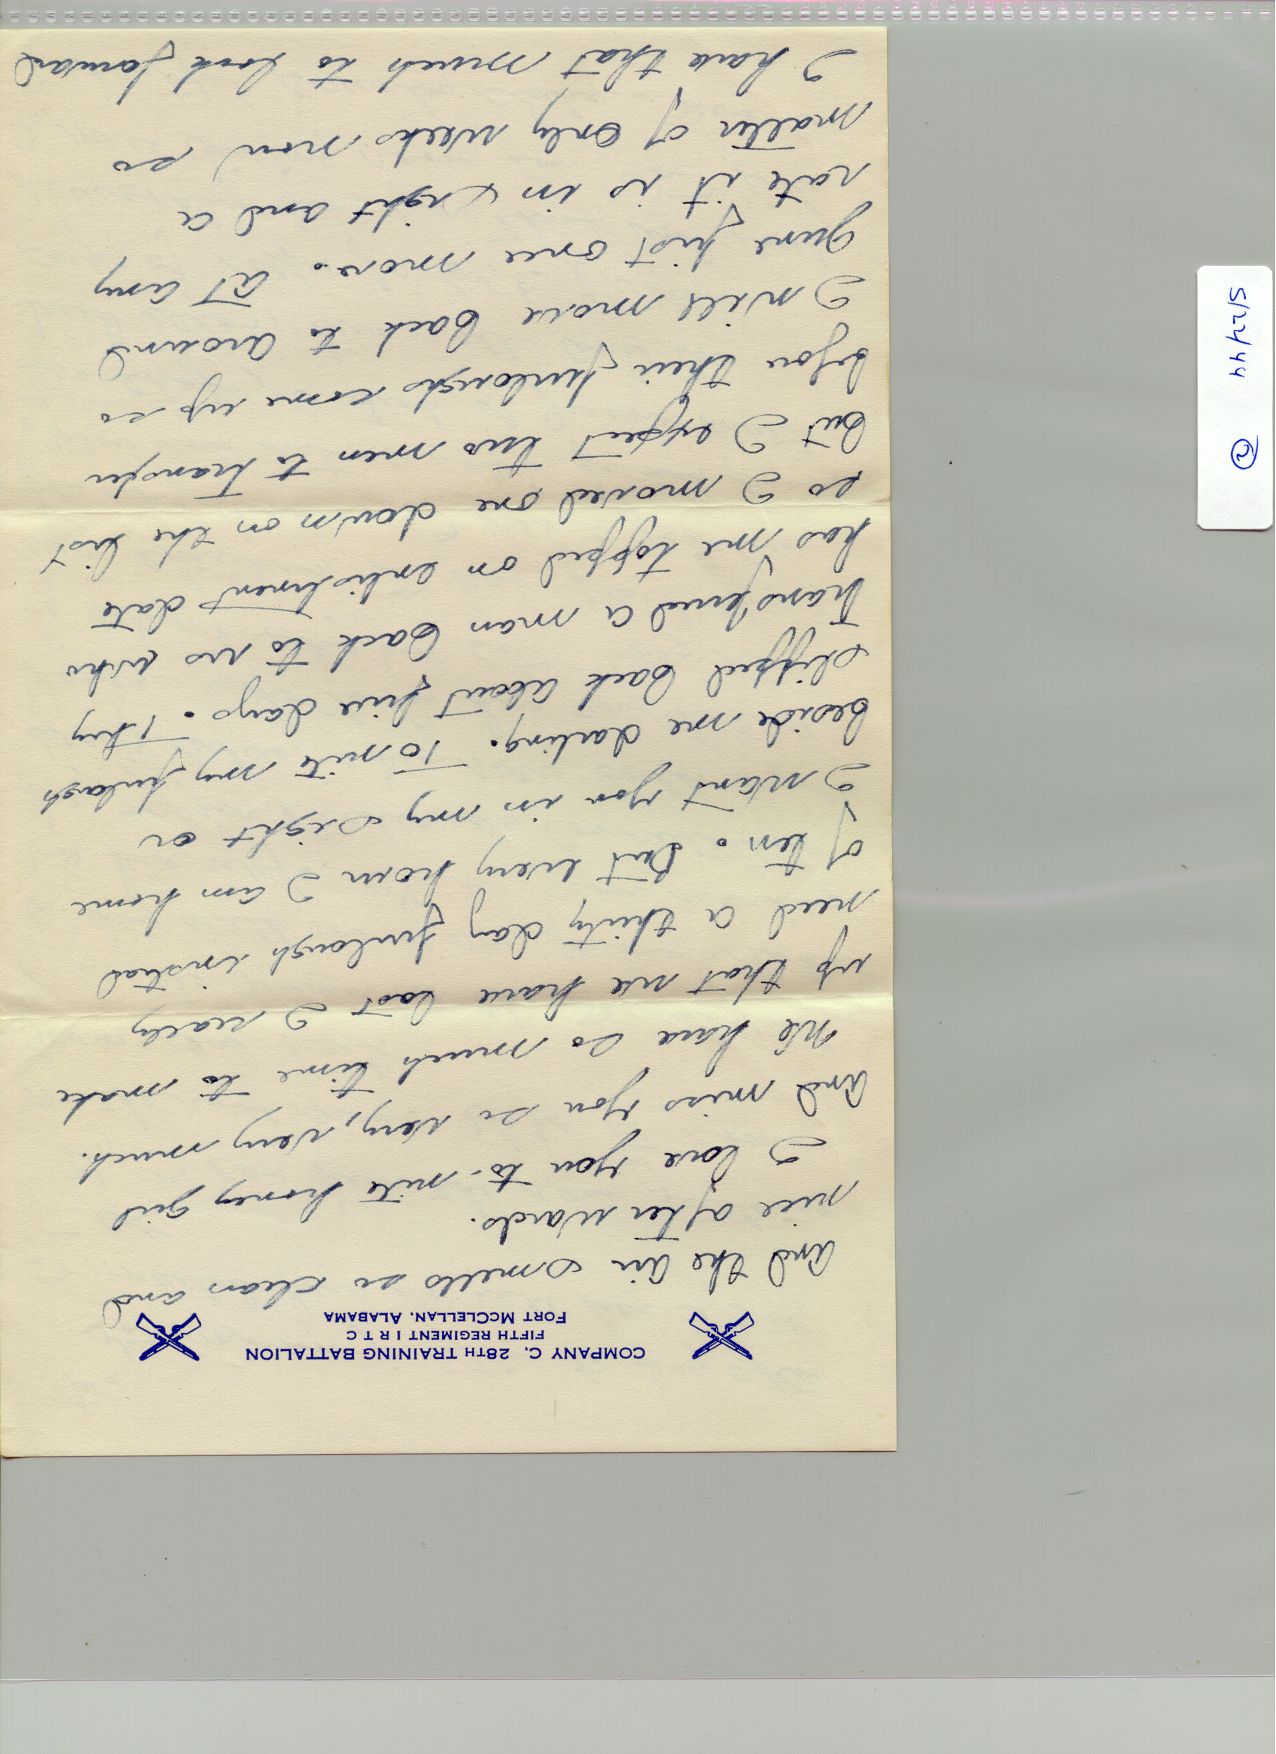 COMPANY C, 28TH TRAINING BATTALION
FIFTH REGIMENT I R T C
FORT McCLELLAN, ALABAMA
and the air smells so clean and
nice after wards.
I love you to-nite honey girl
and miss you so very, very much.
We have so much time to make
up that we have lost I really
need a thirty day furlough instead
of ten. But every hour I am home
I want you in my sight or
beside me darling. To nite my furlough
slipped back about five days. They
transfered a man back to us who
has me topped on enlistment date
so I moved one down on the list
but I expect two men to transfer
before their furloughs come up so
I will move back to around
June first once more. At any
rate it is in sight and a
matter of only weeks now, so
I have that much to look forward
5/22/44 2